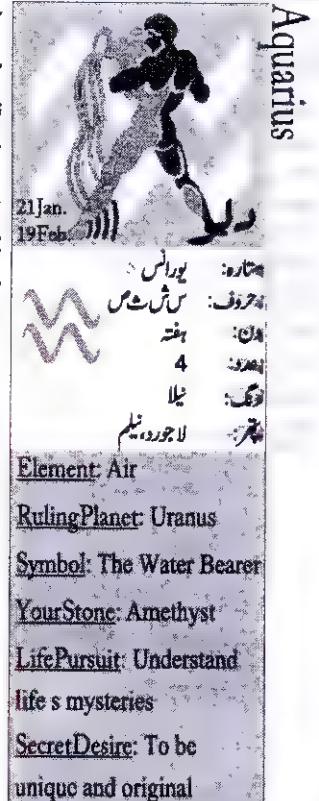 Aquarius
21Jan.
19Feb.
ستارہ: یورانس
حروف: س ش ث ص
دن: ہفتہ
عدد: 4
رنگ: نیلا
پتھر: لاجورد، نیلم
Element: Air
RulingPlanet: Uranus
Symbol: The Water Bearer
YourStone: Amethyst
LifePursuit: Understand
life s mysteries
SecretDesire: To be
unique and original